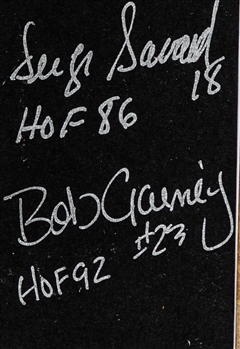 Serge Savard
18
HOF 86
Bob Gainey
#23
HOF92